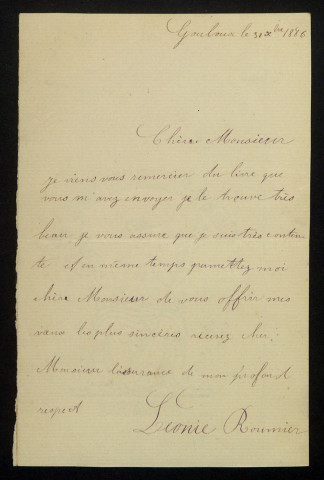 le 31 Xbre 1886
Chère Monsieur
je viens vous remercier du livre que
vous m'avez envoyer je le trouve très
beau je vous assure que je suis très conten
te et en même temps permettez moi
chère Monsieur de vous offrir mes
vœux les plus sincères recevez cher
Monsieur l'assurance de mon profond
respect
Léonie Roumier